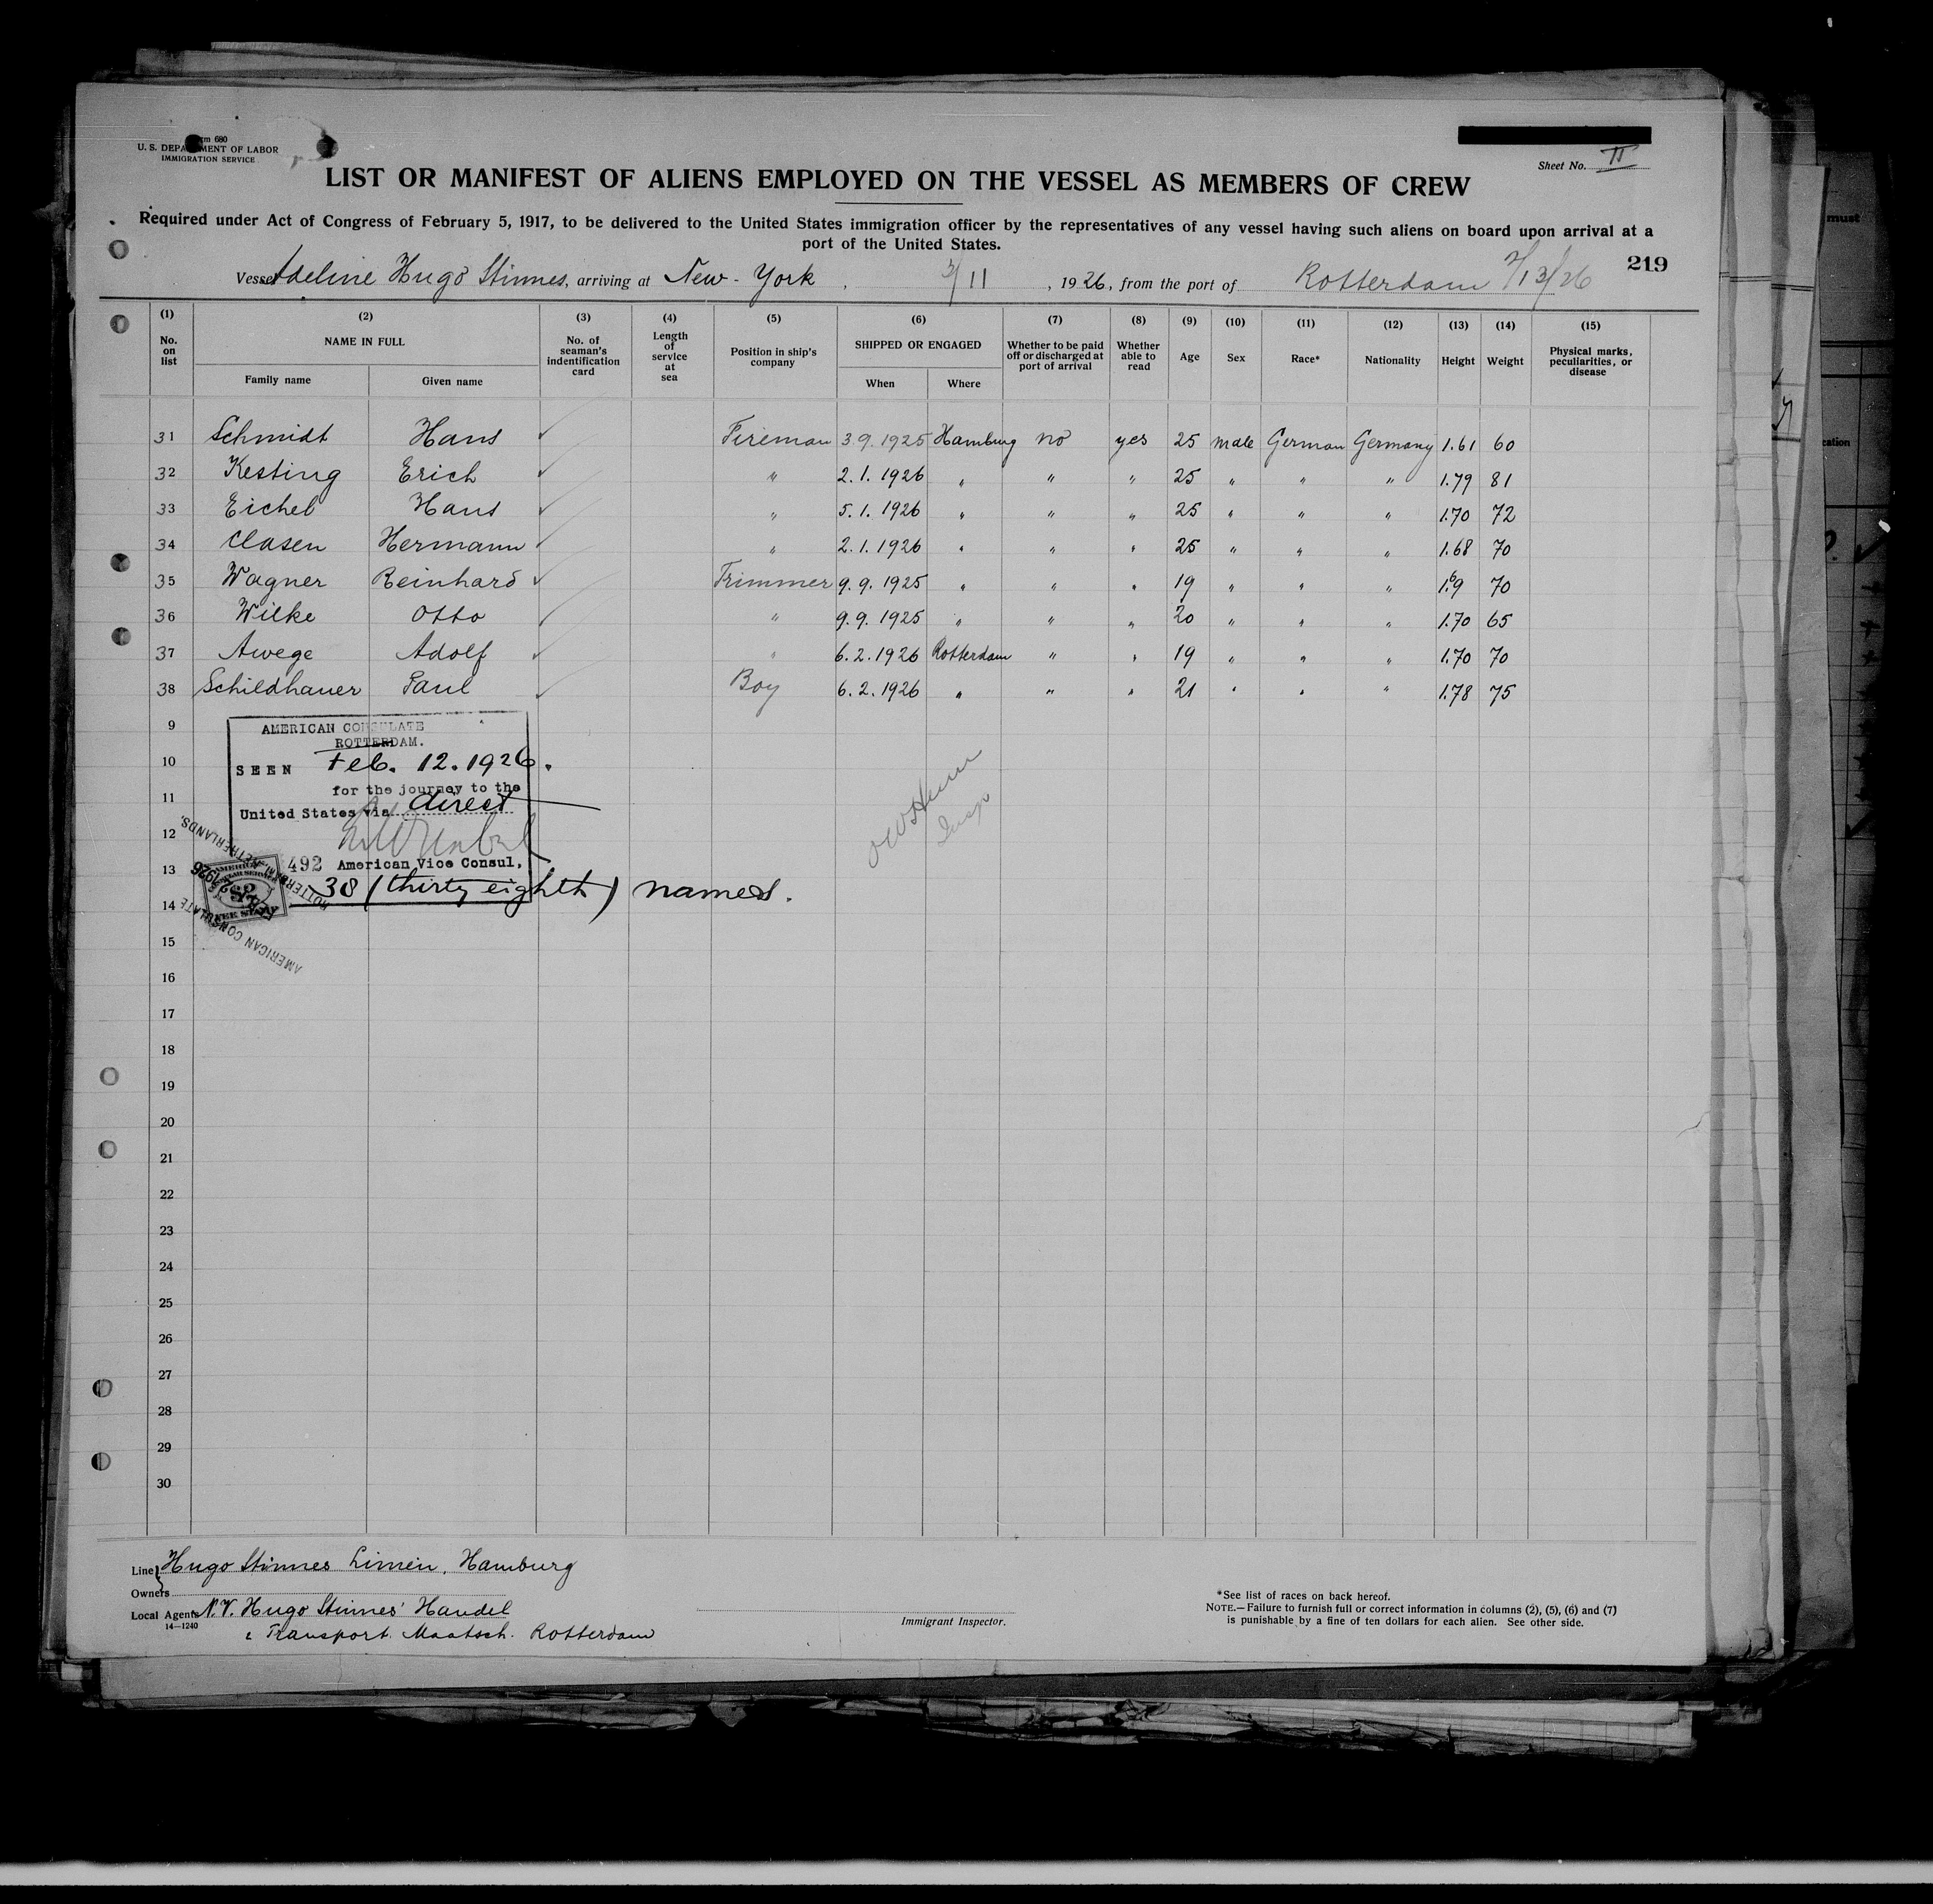 Form 680
U. S. DEPARTMENT OF LABOR
IMMIGRATION SERVICE
Sheet No. II
LIST OR MANIFEST OF ALIENS EMPLOYED ON THE VESSEL AS MEMBERS OF CREW
Required under Act of Congress of February 5, 1917, to be delivered to the United States immigration officer by the representatives of any vessel having such aliens on board upon arrival at a
port of the United States.
219
Vessel Adeline Hugo Stinnes, arriving at New-York, 3/11, 1926, from the port of Rotterdam 2/13/26
(1) (2) (3) (4) (5) (6) (7) (8) (9) (10) (11) (12) (13) (14) (15)
No. on list NAME IN FULL Family name Given name No. of seaman's indentification card Length of service at sea Position in ship's company SHIPPED OR ENGAGED When Where Whether to be paid off or discharged at port of arrival Whether able to read Age Sex Race* Nationality Height Weight Physical marks, peculiarities, or disease
31 Schmidt Hans Fireman 3.9.1925 Hamburg no yes 25 male German Germany 1.61 60
32 Kesting Erich " 2.1.1926 " " " 25 " " " 1.79 81
33 Eichel Hans " 5.1.1926 " " " 25 " " " 1.70 72
34 Clasen Hermann " 2.1.1926 " " " 25 " " " 1.68 70
35 Wagner Reinhard Trimmer 9.9.1925 " " " 19 " " " 1.69 70
36 Wilke Otto " 9.9.1925 " " " 20 " " " 1.70 65
37 Awege Adolf " 6.2.1926 Rotterdam " " 19 " " " 1.70 70
38 Schildhauer Paul Boy 6.2.1926 " " " 21 " " " 1.78 75
9
AMERICAN CONSULATE
ROTTERDAM.
10
SEEN Feb. 12. 1926.
for the journey to the
11
United States via direct
12
13
492 American Vice Consul,
38 (thirty eighth) names.
14
AMERICAN CONSULATE
ROTTERDAM, NETHERLANDS.
Insp
15
16
17
18
19
20
21
22
23
24
25
26
27
28
29
30
Line Hugo Stinnes Linien, Hamburg
Owners
Local Agents N.V. Hugo Stinnes' Handel
& Transport. Maatsch. Rotterdam
14—1240
Immigrant Inspector.
*See list of races on back hereof.
NOTE.—Failure to furnish full or correct information in columns (2), (5), (6) and (7)
is punishable by a fine of ten dollars for each alien. See other side.